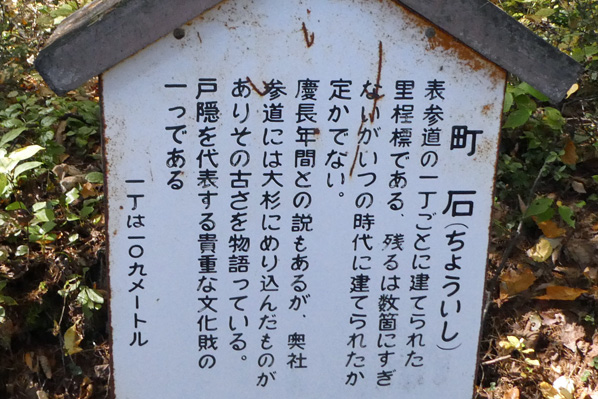 町石(ちょういし)
表参道の一丁ごとに建てられた
里程標である、残るは数箇にすぎ
ないがいつの時代に建てられたか
定かでない。
慶長年間との説もあるが、奥社
参道には大杉にめり込んだものが
ありその古さを物語っている。
戸隠を代表する貴重な文化財の
一っである
一丁は一〇九メートル